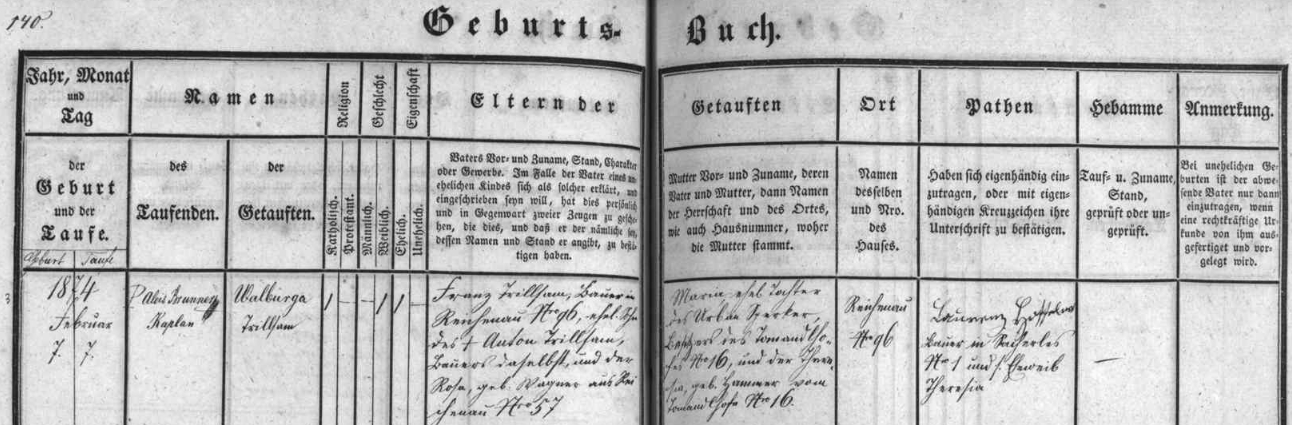 140.
Geburts-
Buch.
Jahr, Monat
und
Tag
Namen
Religion
Geschlecht
Eigenschaft
Eltern der
Getauften
Ort
Pathen
Hebamme
Anmerkung.
der
Geburt
und der
Taufe.
des
Taufenden.
der
Getauften.
Katholisch.
Protestant.
Männlich.
Weiblich.
Ehelich.
Unehelich.
Vaters Vor- und Zuname, Stand, Charakter
oder Gewerbe. Im Falle der Vater eines un-
ehelichen Kindes sich als solcher erklärt, und
eingeschrieben seyn will, hat dies persönlich
und in Gegenwart zweier Zeugen zu gesche-
hen, die dies, und daß er der nämliche sey,
dessen Namen und Stand er angibt, zu bestä-
tigen haben.
Mutter Vor- und Zuname, deren
Vater und Mutter, dann Namen
der Herrschaft und des Ortes,
wie auch Hausnummer, woher
die Mutter stammt.
Namen
desselben
und Nro.
des
Hauses.
Haben sich eigenhändig ein-
zutragen, oder mit eigen-
händigen Kreuzzeichen ihre
Unterschrift zu bestätigen.
Tauf- u. Zuname,
Stand,
geprüft oder un-
geprüft.
Bei unehelichen Ge-
burten ist der abwe-
sende Vater nur dann
einzutragen, wenn
eine rechtkräftige Ur-
kunde von ihm aus-
gefertiget und vor-
gelegt wird.
Geburt Taufe
3
1874
Februar
7. 7.
P. Alois Brunner
Kaplan
Walburga
Trillsam
Franz Trillsam, Bauer in
Reichenau Nro 96, ehel. Sohn
des † Anton Trillsam,
Bauers daselbst, und der
Rosa, geb. Wagner aus Rei
chenau Nro 57
Maria ehel. Tochter
des Urban
Besitzers des Tomandlho-
fes Nro 16, und der There-
sia, geb. Hammer vom
Tomandlhofe Nro 16.
Reichenau
Nro 96
Laurenz
Bauer in
Nro 1 und s. Eheweib
Theresia